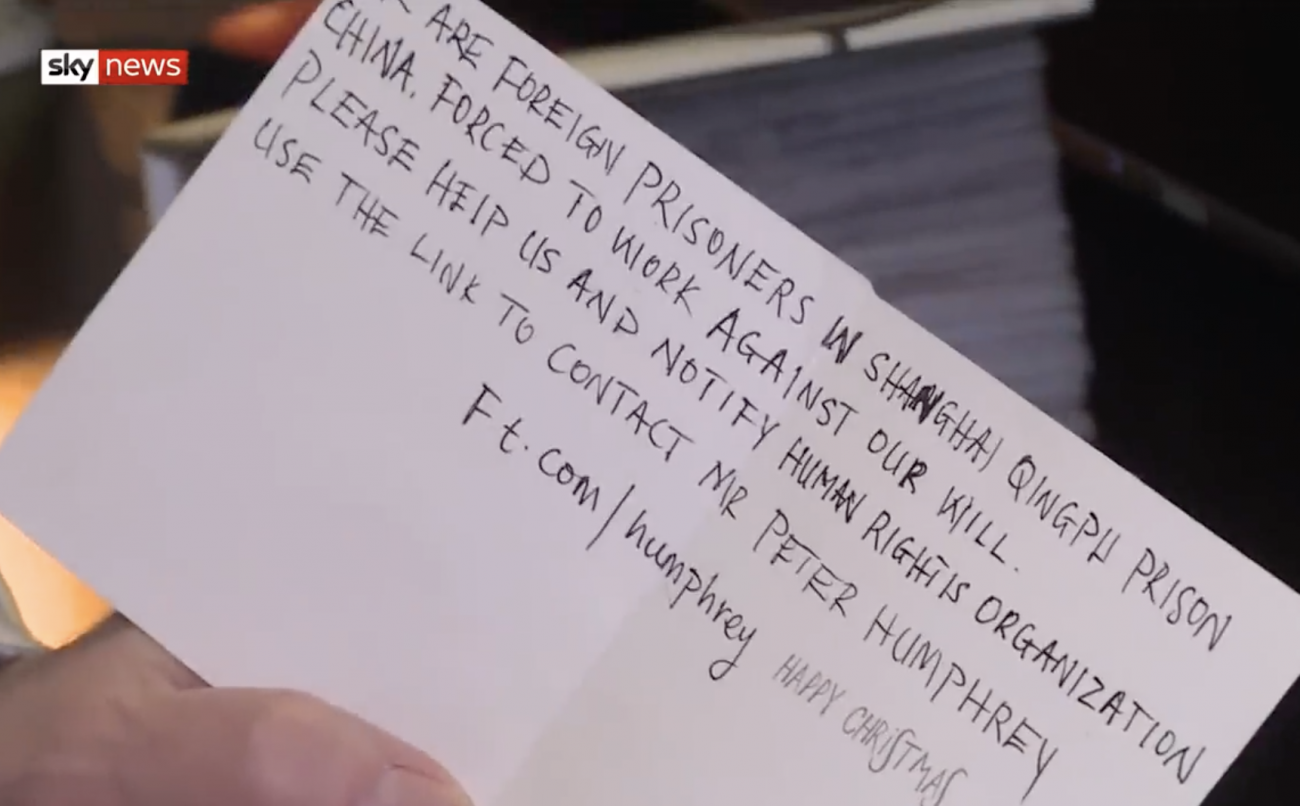 sky news
ARE FOREIGN PRISONERS IN SHANGHAI QINGPU PRISON
CHINA. FORCED TO WORK AGAINST OUR WILL.
PLEASE HELP US AND NOTIFY HUMAN RIGHTS ORGANIZATION
USE THE LINK TO CONTACT MR PETER HUMPHREY
Ft.com/humphrey
HAPPY CHRISTMAS